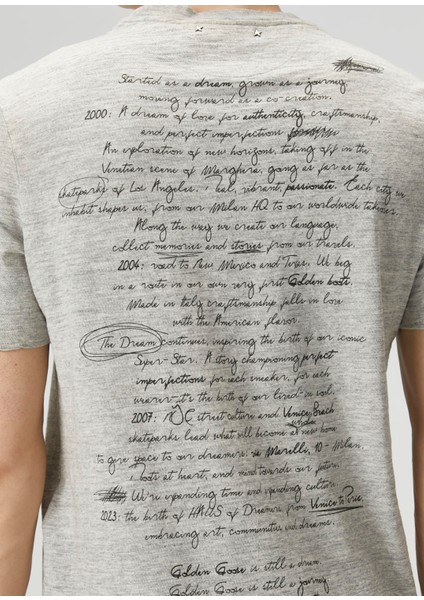 Started as a dream, grown as a journey,
moving forward as a co-creation.
2000: A dream of love for authenticity, craftsmanship,
and perfect imperfections
An exploration of new horizons, taking off in the
Venetian scene of Marghera, going as far as the
skateparks of Los Angeles. Real, vibrant, passionate. Each city we
inhabit shapes us, from our Milan HQ to our worldwide
Along the way we create our language,
collect memories and stories from our travels.
2004: road to New Mexico and Texas. We beg
in a route in our own very first Golden boots.
Made in Italy craftsmanship falls in love
with the American flavor.
The Dream continues, inspiring the birth of our iconic
Super-Star. A story championing perfect
imperfections for each sneaker, for each
wearer: it's the birth of our lived-in
2007: street culture and Venice Beach
skateparks lead what will become new home
to give space to our dreamers: Morelli, 10 - Milan
Roots at heart, and mind towards our future
We're expanding time and expanding culture
2023: the birth of HAUS of Dreamers, from Venice to Paris,
embracing art, communities and dreams.
Golden Goose is still a dream.
Golden Goose is still a journey